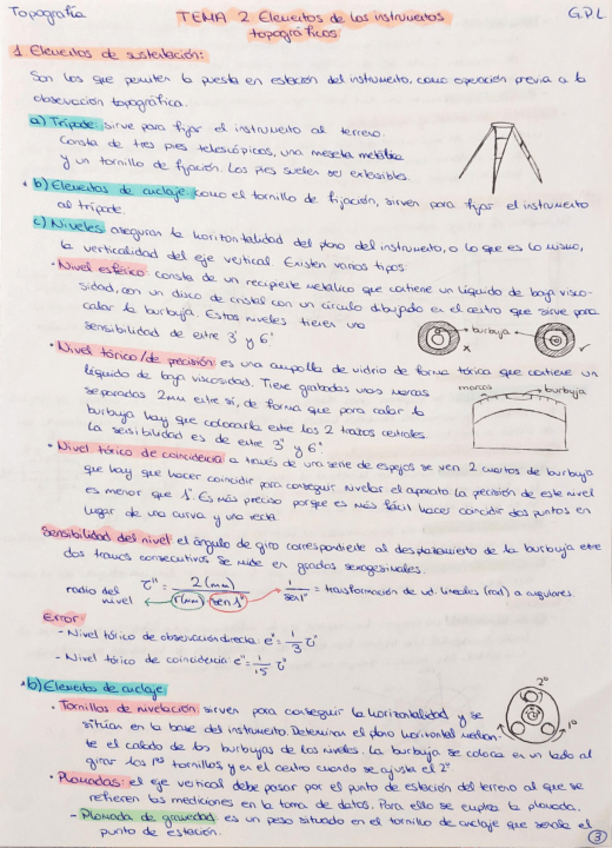 Topografía
TEMA 2. Elementos de los instrumentos
topográficos.
G.P.L
1. Elementos de sustentación:
Son los que permiten la puesta en estación del instrumento, como operación previa a la
observación topográfica.
a) Trípode: sirve para fijar el instrumento al terreno.
Consta de tres pies telescópicos, una meseta metálica
y un tornillo de fijación. Los pies suelen ser extensibles.
b) Elementos de anclaje: como el tornillo de fijación, sirven para fijar el instrumento
al trípode.
c) Niveles: aseguran la horizontalidad del plano del instrumento, o lo que es lo mismo,
la verticalidad del eje vertical. Existen varios tipos:
· Nivel esférico: consta de un recipiente metálico que contiene un líquido de baja visco-
sidad, con un disco de cristal con un círculo dibujado en el centro que sirve para
calar la burbuja. Estos niveles tienen una
sensibilidad de entre 3' y 6'
burbuja
x
✓
· Nivel tórico/de precisión: es una ampolla de vidrio de forma tórica que contiene un
líquido de baja viscosidad. Tiene grabadas unas marcas
separadas 2mm entre sí, de forma que para calar la
burbuja hay que colocarla entre los 2 trazos centrales.
La sensibilidad es de entre 3" y 6".
marcas
burbuja
· Nivel tórico de coincidencia: a través de una serie de espejos se ven 2 cuartos de burbuja
que hay que hacer coincidir para conseguir nivelar el aparato. La precisión de este nivel
es menor que 1". Es más preciso porque es más fácil hacer coincidir dos puntos en
lugar de una curva y una recta.
Sensibilidad del nivel: el ángulo de giro correspondiente al desplazamiento de la burbuja entre
dos trazos consecutivos. Se mide en grados sexagesimales.
radio del
nivel
τ" = 2(mm) / r(mm)·sen 1"
1 / sen 1" = transformación de ud. lineales (rad) a angulares.
Error:
- Nivel tórico de observación directa: e" = 1/3 τ"
- Nivel tórico de coincidencia: e" = 1/15 τ"
b) Elementos de anclaje
· Tornillos de nivelación: sirven para conseguir la horizontalidad y se
sitúan en la base del instrumento. Determinan el plano horizontal median-
te el calado de las burbujas de los niveles. La burbuja se coloca en un lado al
girar los 1ºs tornillos y en el centro cuando se ajusta el 2º.
2º
1º
· Plomadas: el eje vertical debe pasar por el punto de estación del terreno al que se
refieren las mediciones en la toma de datos. Para ello se emplea la plomada.
- Plomada de gravedad: es un peso situado en el tornillo de anclaje que señala el
punto de estación.
3